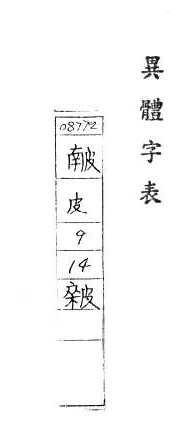 異體字表
08772
皮
9
14